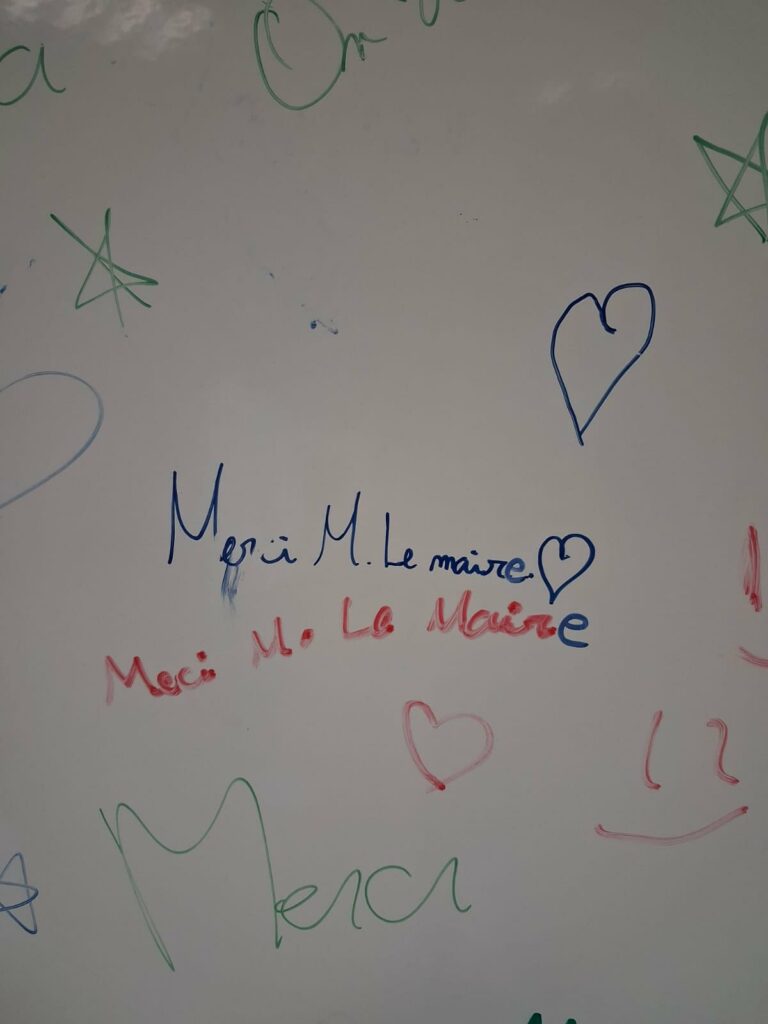 Merci M. Le maire.
Merci M. Le Maire
Merci